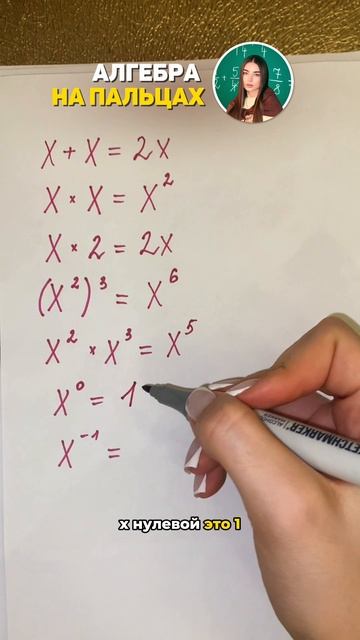 АЛГЕБРА
НА ПАЛЬЦАХ
x + x = 2x
x × x = x²
x × 2 = 2x
(x²)³ = x⁶
x² × x³ = x⁵
x⁰ = 1
x⁻¹ =
х нулевой это 1